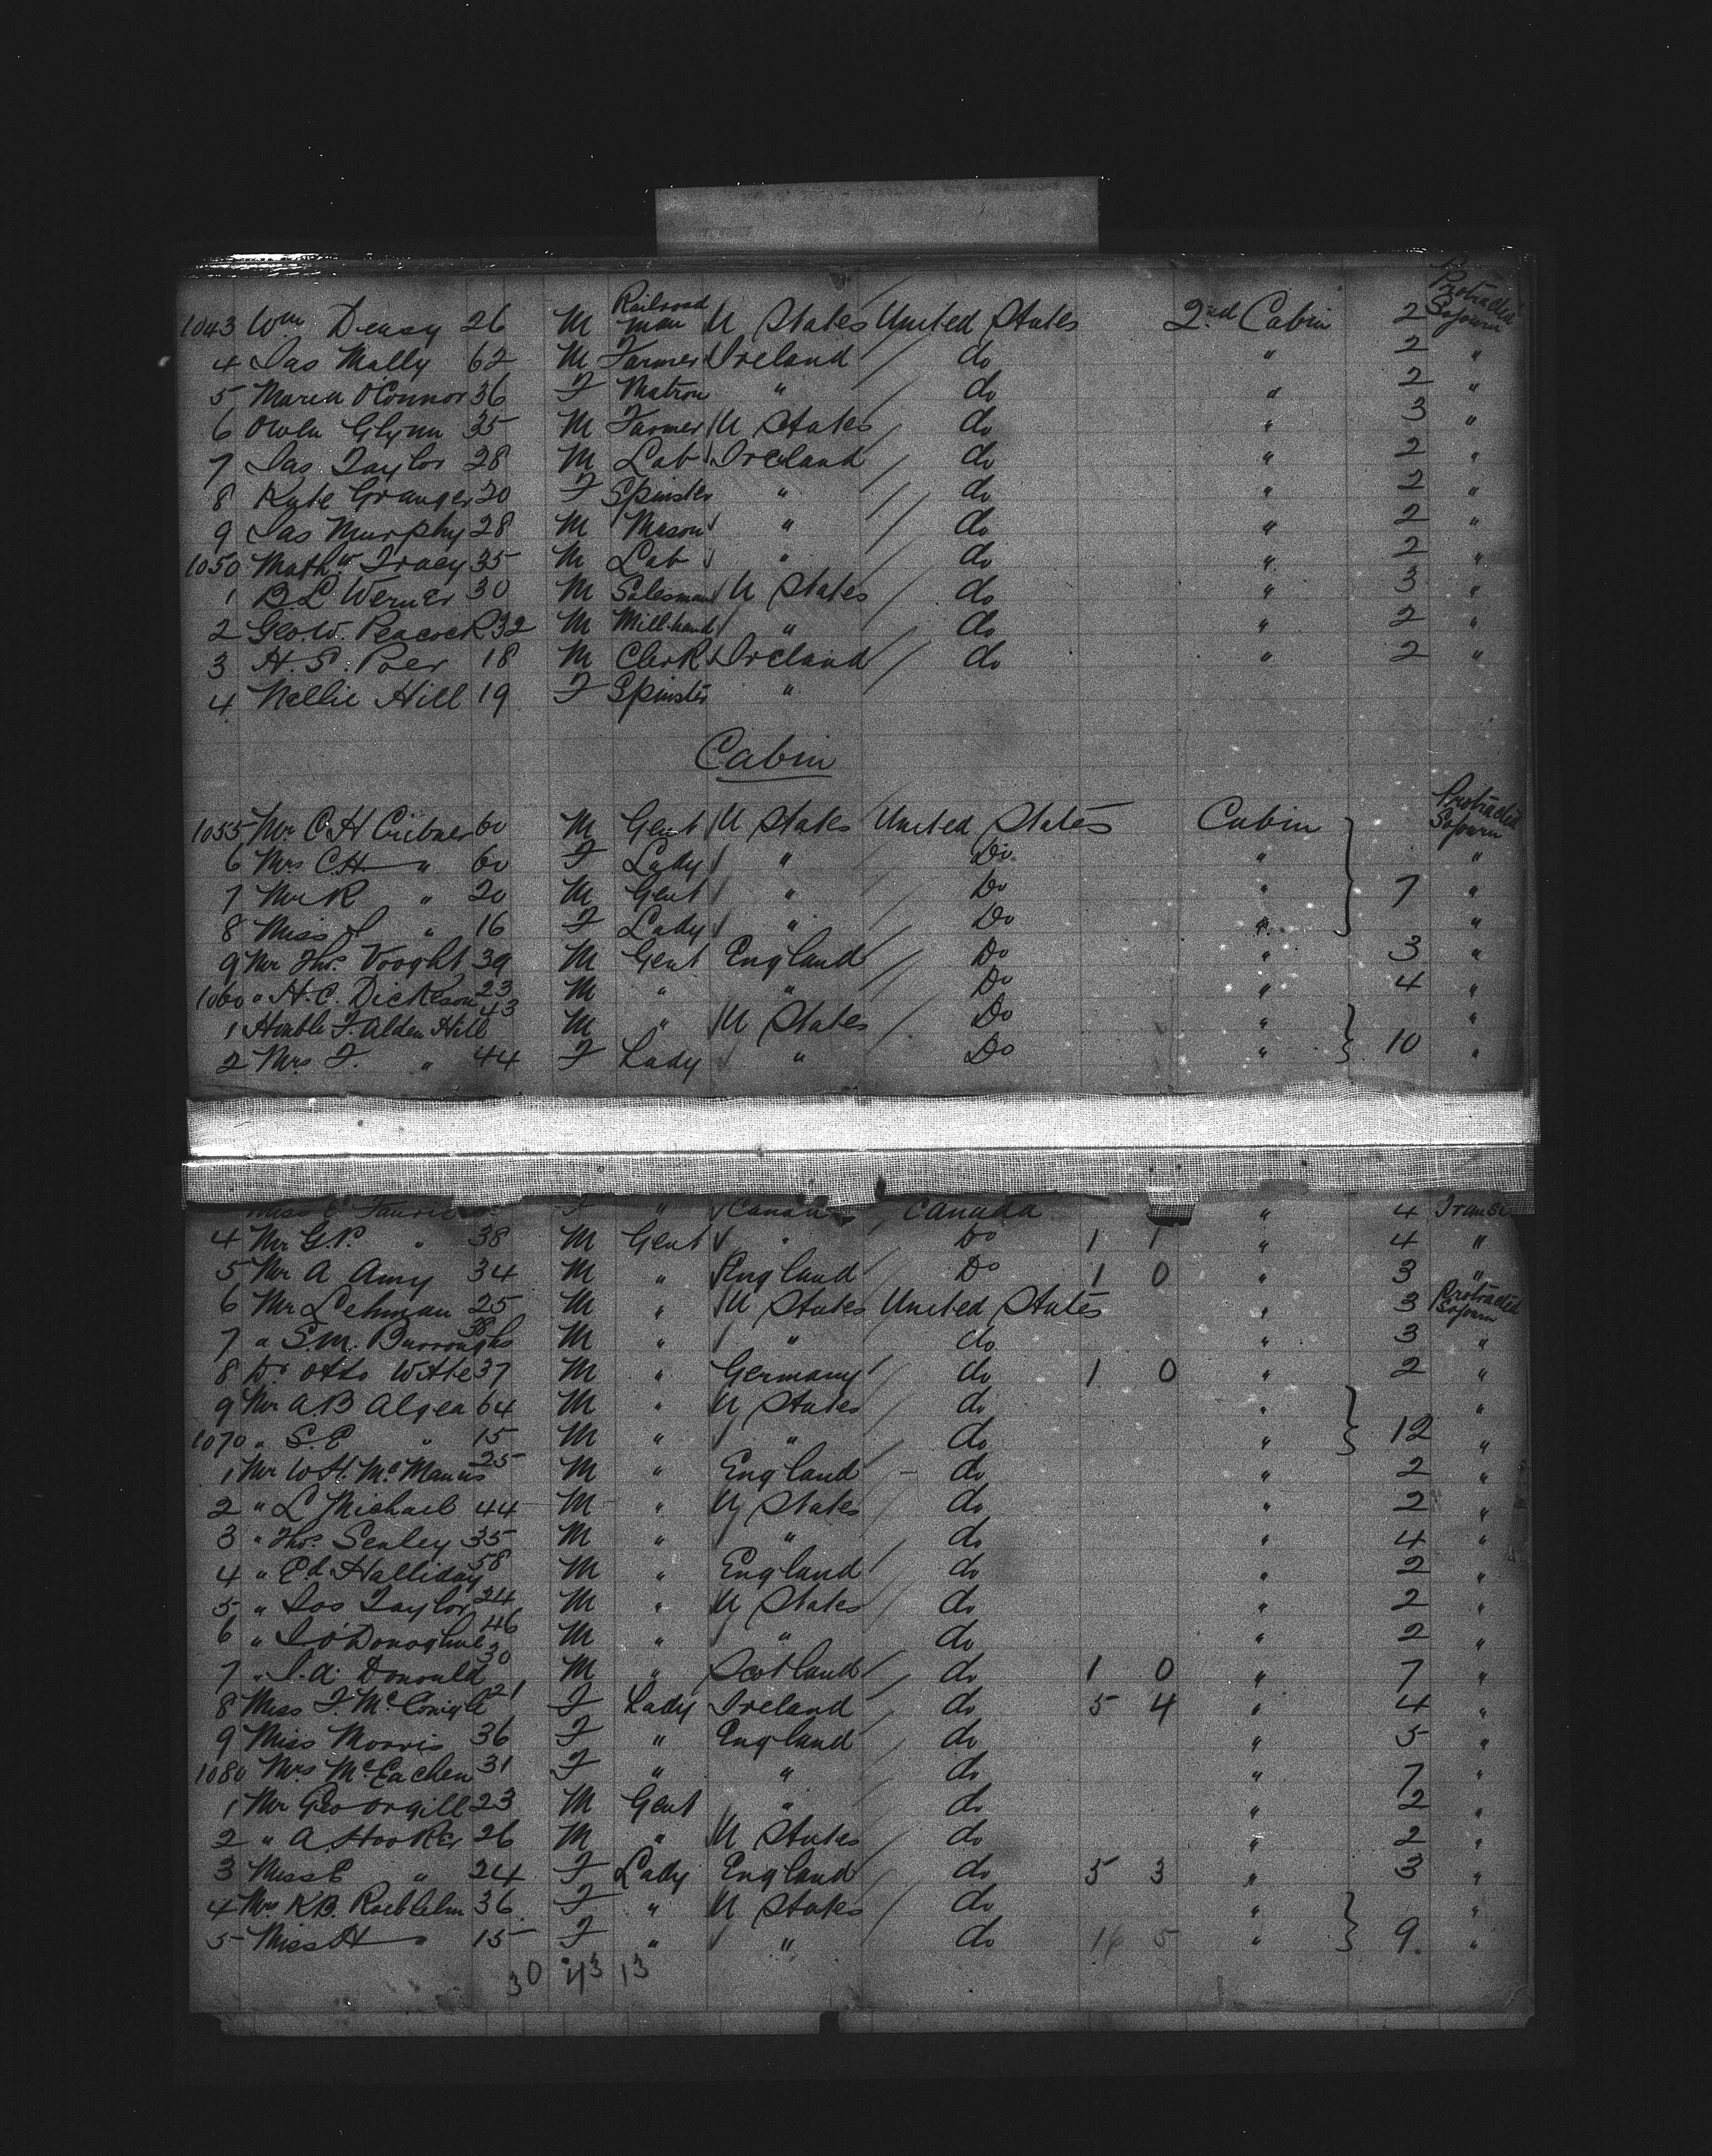 1043 Wm Deasy 26 M Railroad man U States United States 2nd Cabin 2 Protracted Sojourn
4 Jas Mally 62 M Farmer Ireland do " 2 "
5 Maria O'Connor 36 F Matron " do " 2 "
6 Owen Glynn 35 M Farmer U States do " 3 "
7 Jas Taylor 28 M Lab Ireland do " 2 "
8 Kate Granger 20 F Spinster " do " 2 "
9 Jas Murphy 28 M Mason " do " 2 "
1050 Mathw Tracy 35 M Lab " do " 2 "
1 B.L. Werner 30 M Salesman U States do " 3 "
2 Geo W. Peacock 32 M Mill-hand " do " 2 "
3 H.S. Poer 18 M Clerk Ireland do " 2 "
4 Nellie Hill 19 F Spinster "
Cabin
1055 Mr C H 60 M Gent U States United States Cabin Protracted Sojourn
6 Mrs CH " 60 F Lady " Do " "
7 Mr R " 20 M Gent " Do " 7 "
8 Miss " 16 F Lady " Do " "
9 Mr Thos. Vooght 39 M Gent England Do " 3 "
1060 " H.C. Dickeson 23 M " " Do " 4 "
1 Honble F. Alden Hill 43 M " U States Do " "
2 Mrs F. " 44 F Lady " Do " 10 "
Miss F " Canada Canada " 4 Transit
4 Mr G.P. " 38 M Gent " Do 1 1 " 4 "
5 Mr A Amy 34 M " England Do 1 0 " 3 "
6 Mr Lehman 25 M " U States United States " 3 Protracted Sojourn
7 " S.M. Burroughs 38 M " " do " 3 "
8 Dr Otto Witte 37 M " Germany do 1 0 " 2 "
9 Mr A.B Algea 64 M " U States do " "
1070 " S.E " 15 M " " do " 12 "
1 Mr W.H. McManus 25 M " England do " 2 "
2 " L Michael 44 M " U States do " 2 "
3 " Thos. Senley 35 M " " do " 4 "
4 " Ed Halliday 58 M " England do " 2 "
5 " Jos Taylor 24 M " U States do " 2 "
6 " J O'Donoghue 46 M " " do " 2 "
7 " J.A. Donould 30 M " Scotland do 1 0 " 7 "
8 Miss F. McConigle 21 F Lady Ireland do 5 4 " 4 "
9 Miss Morris 36 F " England do " 5 "
1080 Mrs McEachen 31 F " " do " 7 "
1 Mr Geo Orgill 23 M Gent " do " 2 "
2 " A. Hooker 26 M " U States do " 2 "
3 Miss E " 24 F Lady England do 5 3 " 3 "
4 Mrs K.B. 36 F " U States do " "
5 Miss H " 15 F " " do 16 5 " 9. "
30 43 13